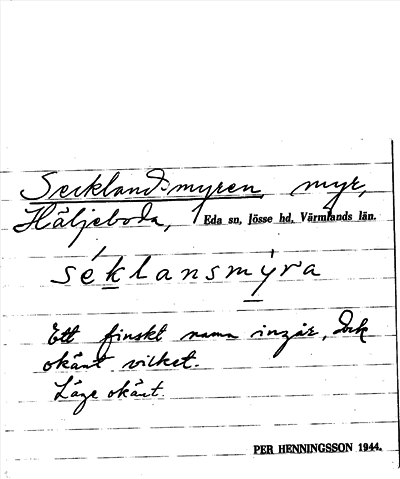 Secklandsmyren, myr,
Häljeboda, Eda sn, Jösse hd, Värmlands län.
séklansmýra
Ett finskt namn ingår, dock
okänt vilket.
Läge okänt.
PER HENNINGSSON 1944.